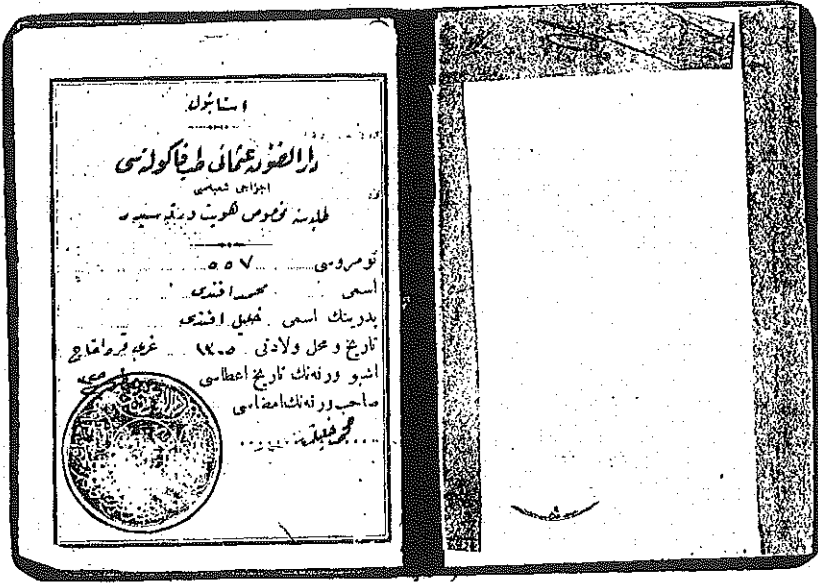 استانبول
دار الفنون عثمانی طب فاکولته‌سی
اجزاجی شعبه‌سی
طلبه‌سنه مخصوص هویت ورقه‌سیدر
نومروسی ٥٥٧
اسمی محمد افندی
پدرینك اسمی خلیل افندی
تاریخ و محل ولادتی ١٣٠٥ غربی قره اغاج
اشبو ورقه‌نك تاریخ اعطاسی
صاحب ورقه‌نك امضاسی
محمد خلیل